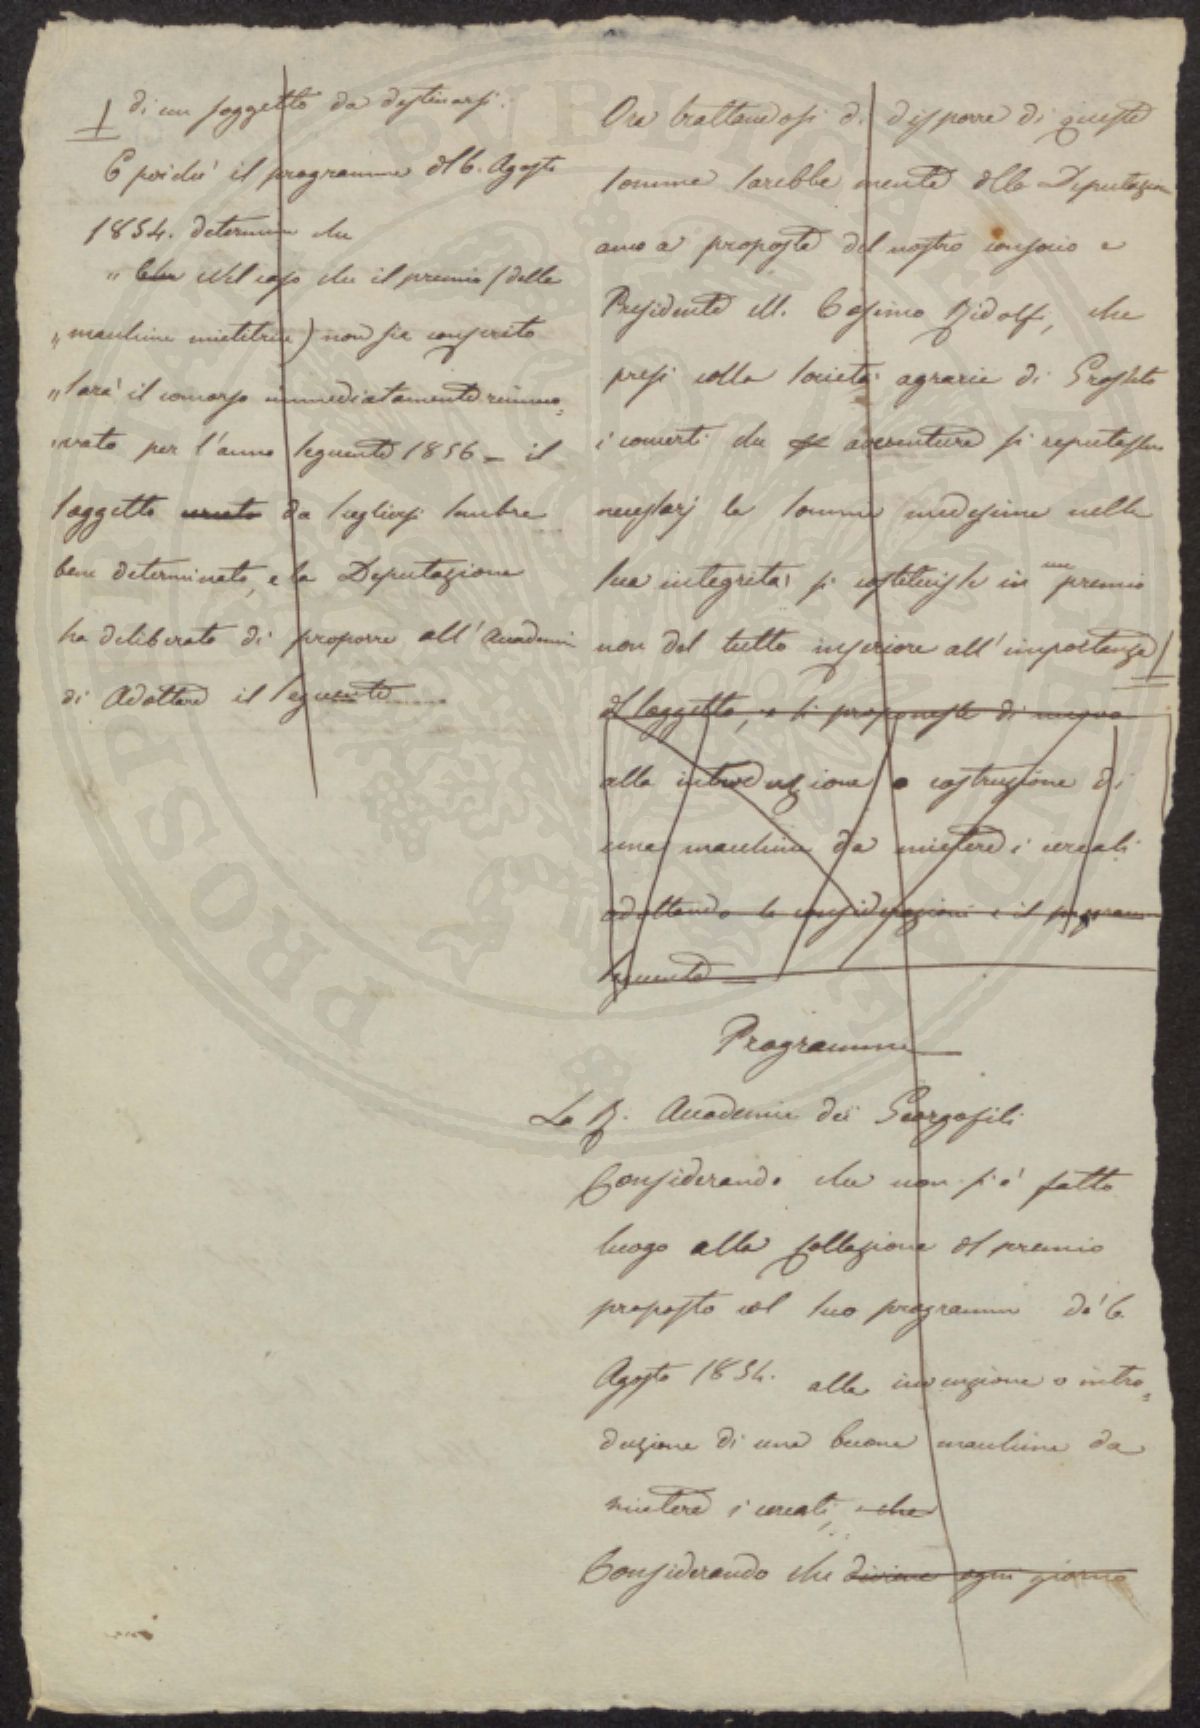 di un soggetto da destinarsi.
E poiché il programma del 6. Agosto
1854. determina che
" Che nel caso che il premio (delle
" macchine mietitrici) non sia conferito
" sarà il concorso immediatamente rinno=
" vato per l'anno seguente 1856 — il
soggetto da scegliersi sembra
bene determinato, e la Deputazione
ha deliberato di proporre all'Accademia
di adottare il seguente
Ora trattandosi di disporre di queste
somme sarebbe mente della Deputazione
anco a proposta del nostro consocio e
Presidente M. Cosimo Ridolfi, che
presi colla Società agraria di Grosseto
i concerti che avventura si reputassero
necessarj la somma medesima nella
sua integrità si costituisse in un premio
non del tutto inferiore all'importanza
del soggetto, e si proponesse di nuovo
alla introduzione o costruzione di
una macchina da mietere i cereali
adottando le considerazioni e il programma
seguente —
Programma
La R. Accademia dei Georgofili
Considerando che non si è fatto
luogo alla collazione del premio
proposto col suo programma de' 6.
Agosto 1854. alla invenzione o intro=
duzione di una buona macchina da
mietere i cereali, che
Considerando che diviene ogni giorno